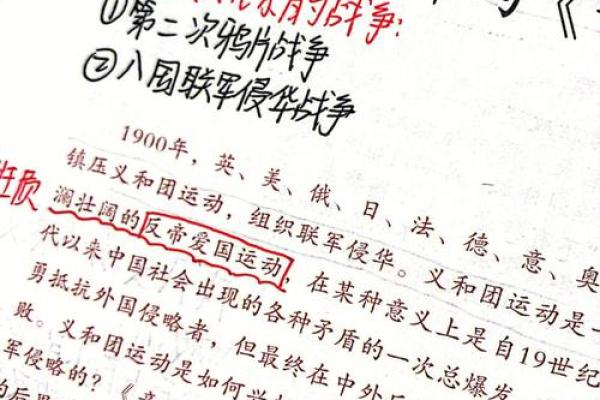 的战争:
①第二次鸦片战争
②八国联军侵华战争
《
1900年，英、美、俄、日、法、德、意、奥
镇压义和团运动，组织联军侵华。义和团运动是一
澜壮阔的反帝爱国运动，在某种意义上是自19世纪
代以来中国社会出现的各种矛盾的一次总爆发
勇抵抗外国侵略者，但最终在中外
败。义和团运动是如何兴
军侵略的？《
后果